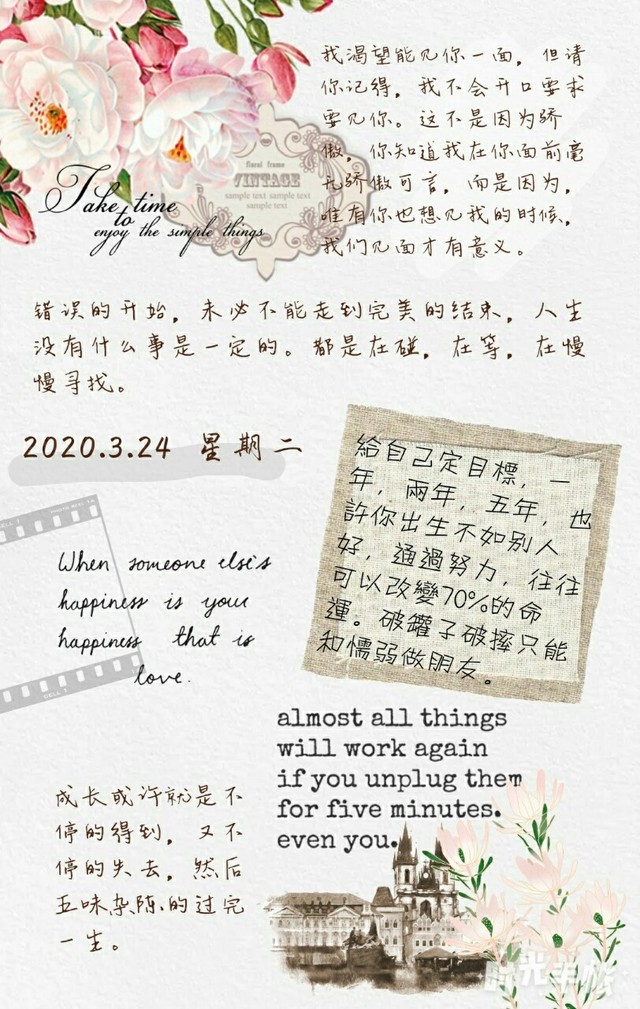 我渴望能见你一面，但请
你记得，我不会开口要求
要见你。这不是因为骄
傲，你知道我在你面前毫
无骄傲可言，而是因为，
唯有你也想见我的时候，
我们见面才有意义。
floral frame
VINTAGE
sample text sample text
sample text
Take time
to
enjoy the simple things
错误的开始，未必不能走到完美的结束，人生
没有什么事是一定的。都是在碰，在等，在慢
慢寻找。
2020.3.24 星期二
給自己定目標，一
年，兩年，五年，也
許你出生不如别人
好，通過努力，往往
可以改變70%的命
運。破罐子破摔只能
和懦弱做朋友。
When someone else's
happiness is your
happiness that is
love.
almost all things
will work again
if you unplug them
for five minutes.
even you.
成长或许就是不
停的得到，又不
停的失去，然后
五味杂陈的过完
一生。